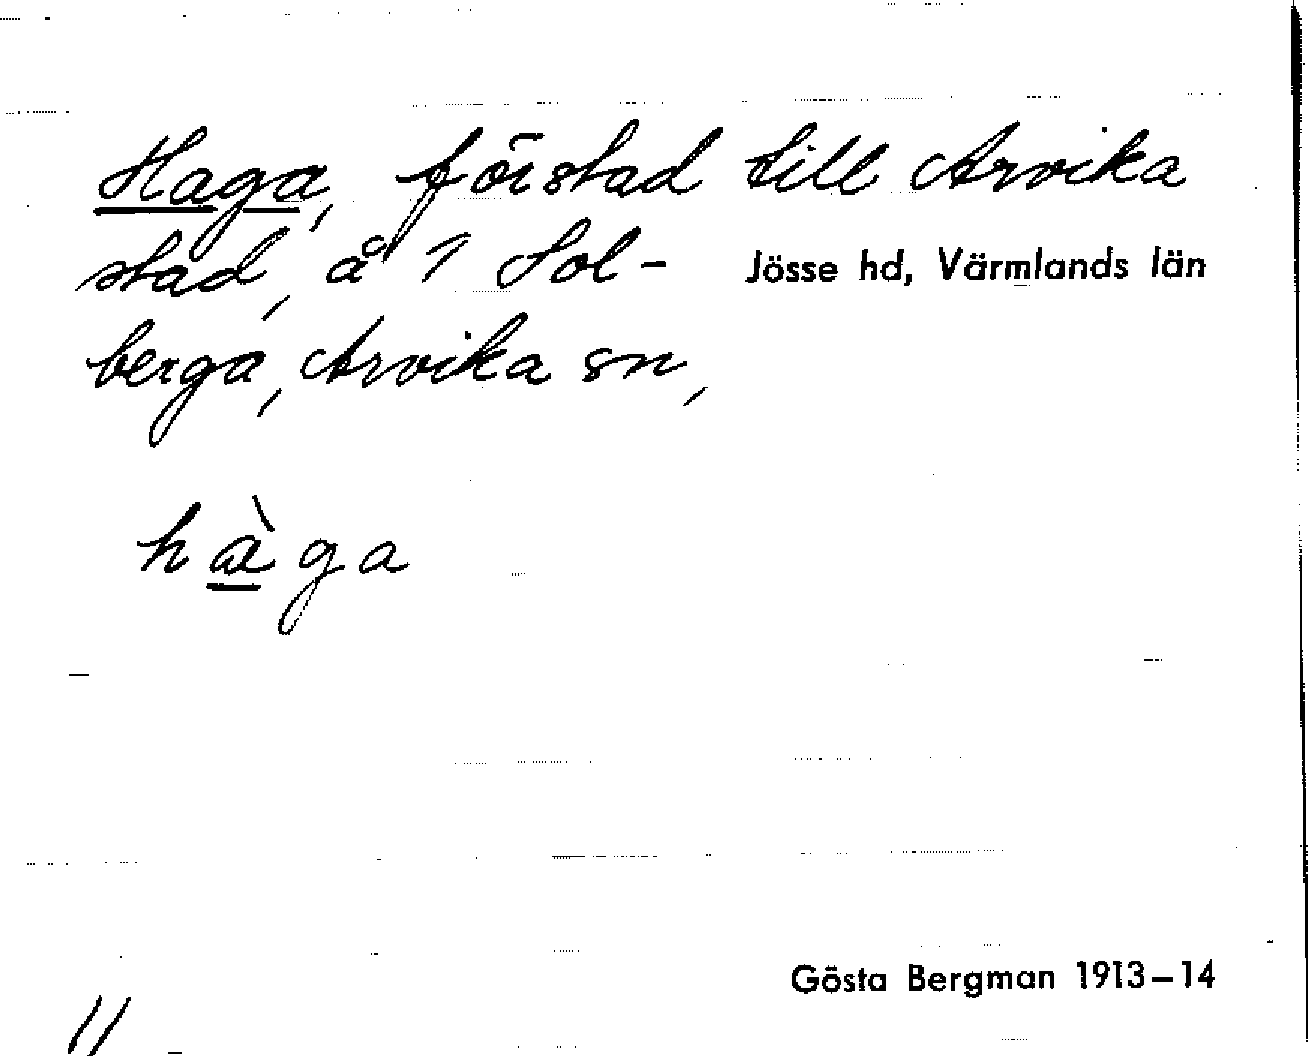 Haga, förstad till Arvika
stad, å 1 Sol- Jösse hd, Värmlands län
berga, Arvika sn,
hàga
Gösta Bergman 1913–14
11